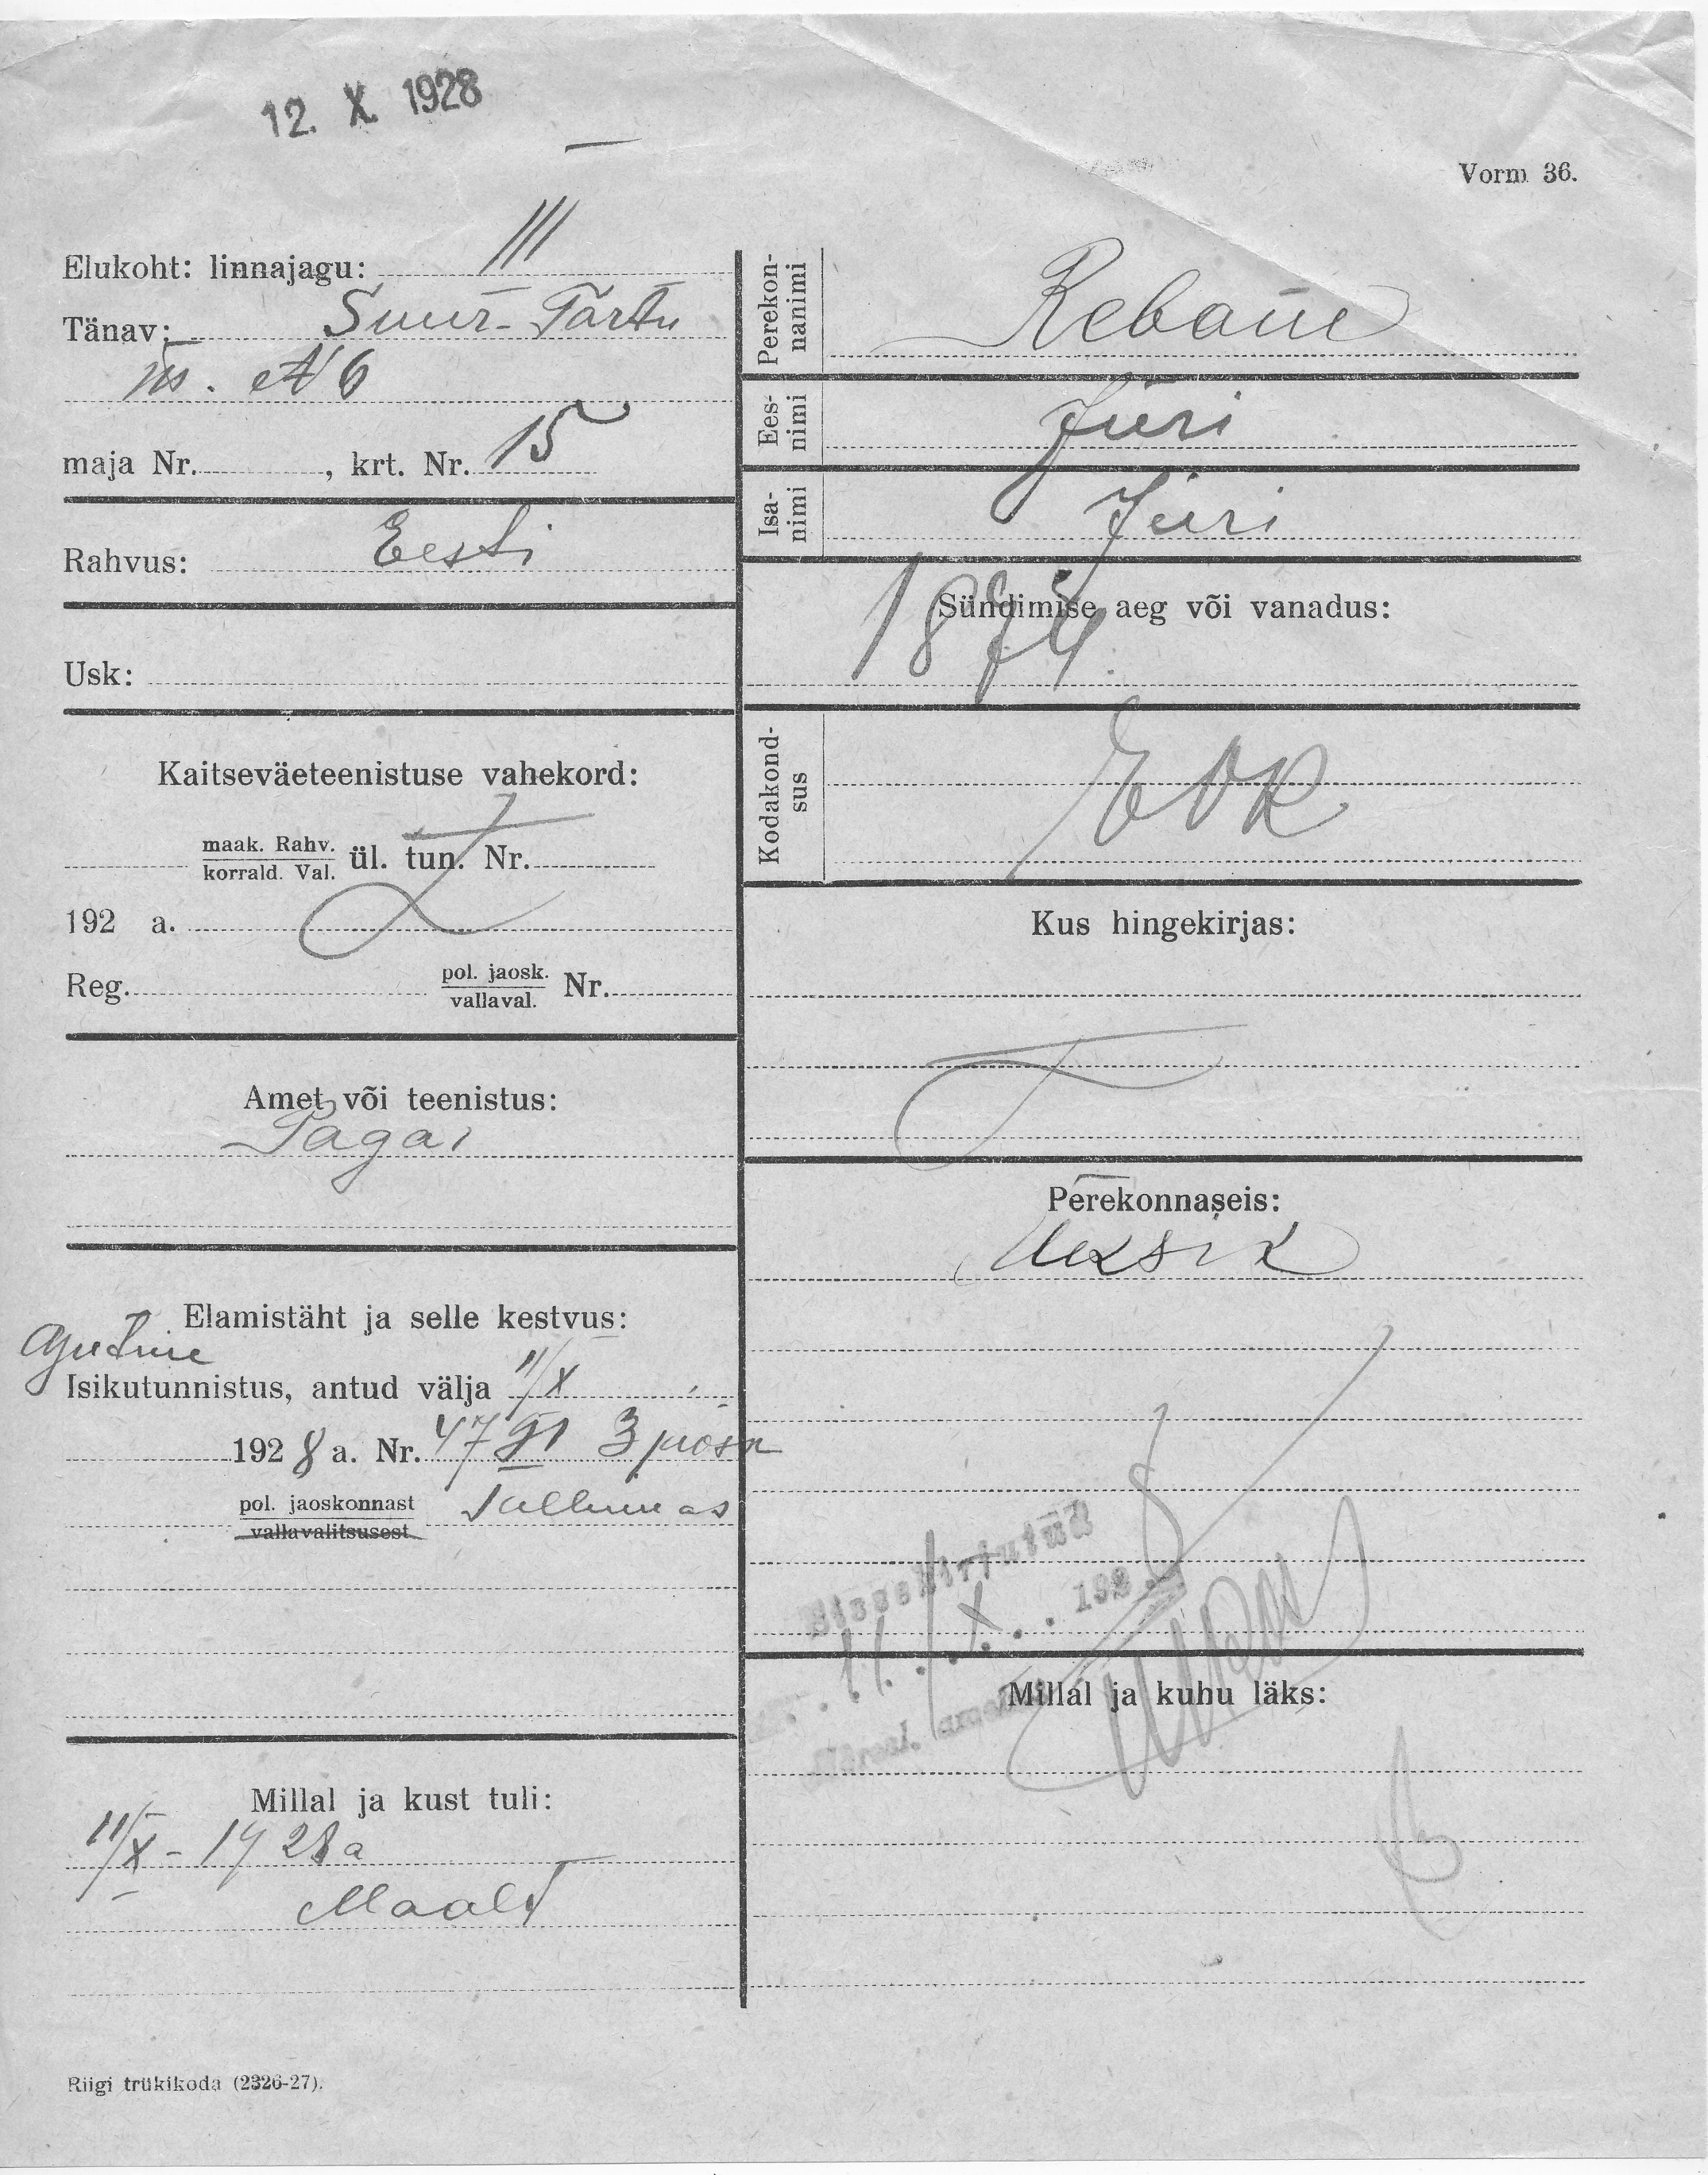 12. X. 1928
Vorm 36.
Elukoht: linnajagu: III
Tänav: Suur-Tartu
m. № 6
maja Nr. , krt. Nr. 15
Rahvus: Eesti
Usk:
Kaitseväeteenistuse vahekord:
maak. Rahv.
korrald. Val. ül. tun. Nr.
192 a.
Reg. pol. jaosk.
vallaval. Nr.
Amet või teenistus:
Pagar
Elamistäht ja selle kestvus:
Ajutine
Isikutunnistus, antud välja 11/X
1928 a. Nr. 47 3
pol. jaoskonnast Tallinnas
vallavalitsusest
Millal ja kust tuli:
11/X - 1928 a
Maalt
Riigi trükikoda (2326-27).
Perekon-
nanimi Rebane
Ees-
nimi Jüri
Isa-
nimi Jüri
Sündimise aeg või vanadus:
1874
Kodakond-
sus EVK
Kus hingekirjas:
Perekonnaseis:
Üksik
Sissekirjutud
11. X. 1928
Millal ja kuhu läks: